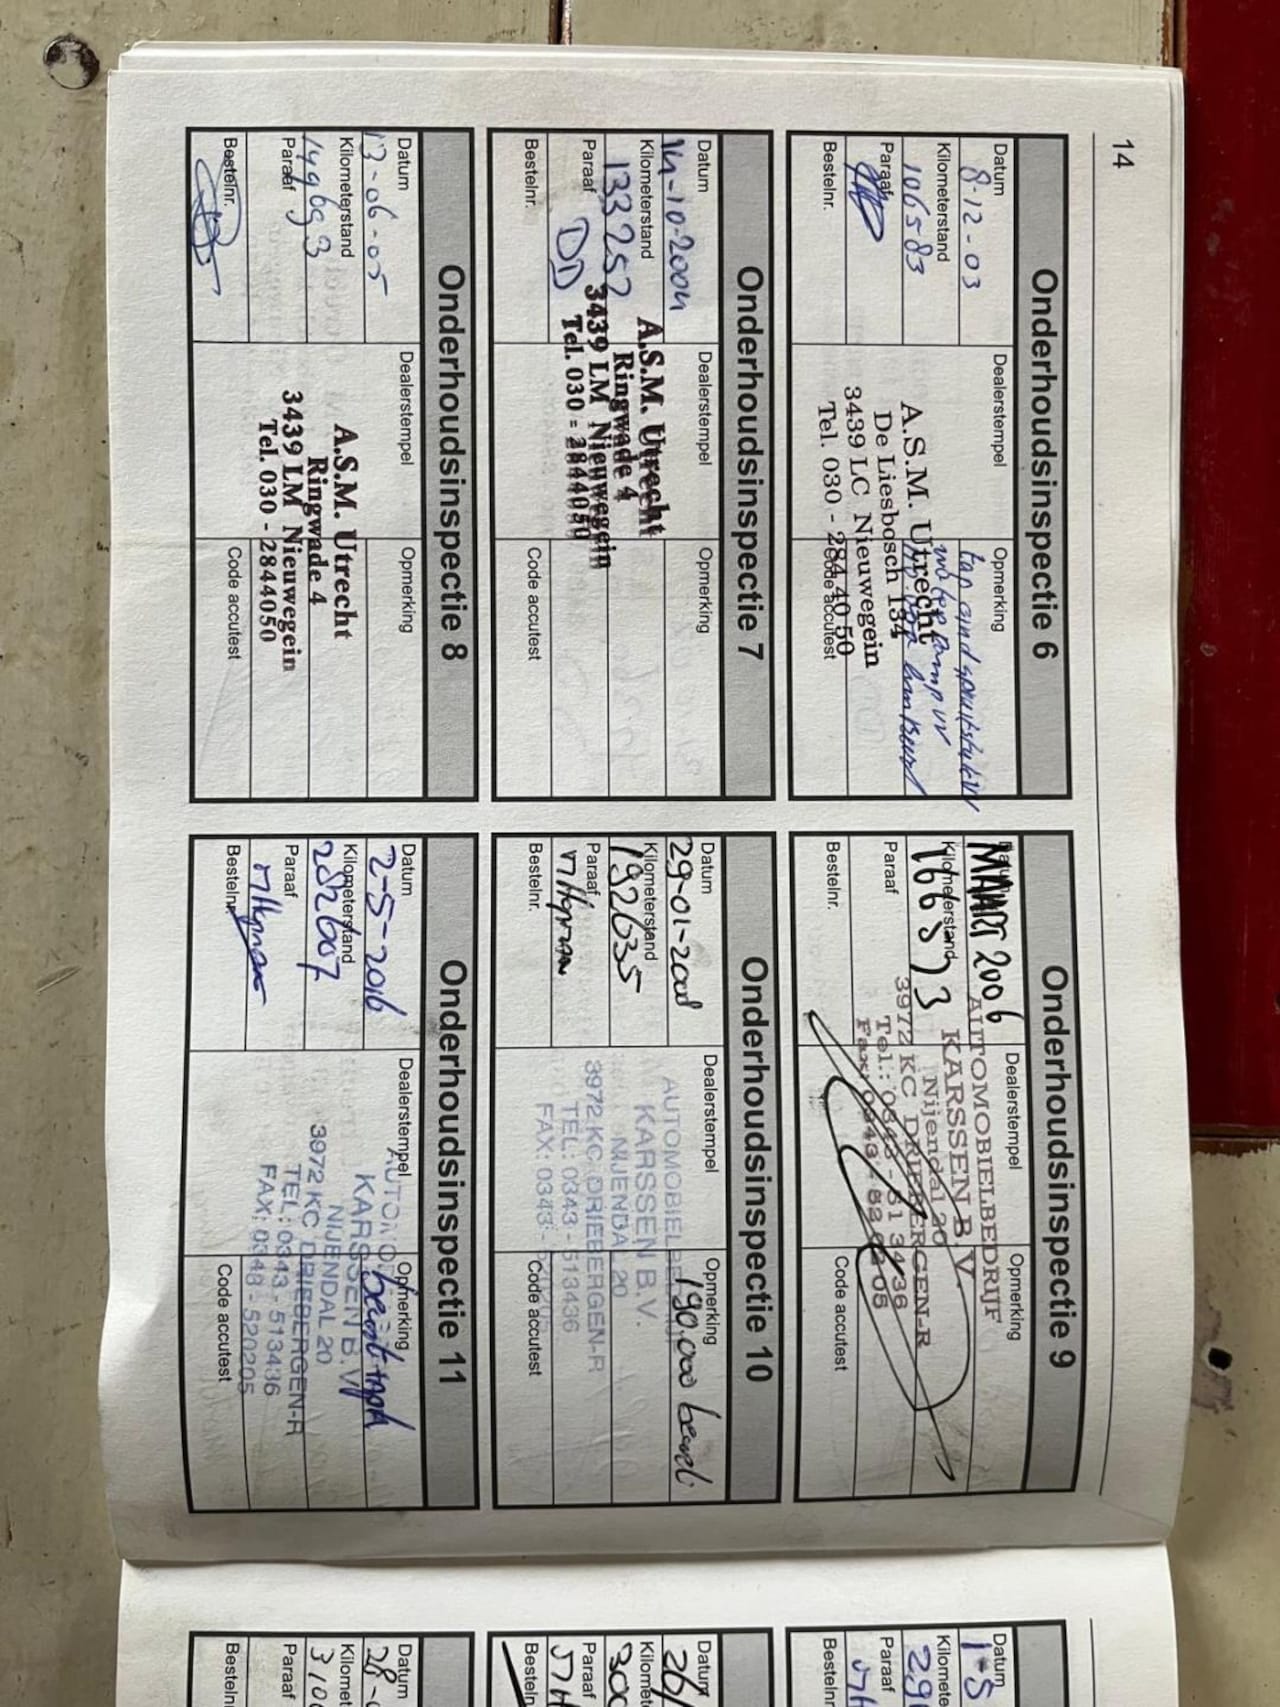 14
Onderhoudsinspectie 6
Datum
8-12-03
Kilometerstand
106583
Paraaf
Bestelnr.
Dealerstempel
A.S.M. Utrecht
De Liesbosch 134
3439 LC Nieuwegein
Tel. 030 - 284 40 50
Opmerking
waterpomp vv
Code accutest
Onderhoudsinspectie 7
Datum
14-10-2004
Kilometerstand
133252
Paraaf
DD
Bestelnr.
Dealerstempel
A.S.M. Utrecht
Ringwade 4
3439 LM Nieuwegein
Tel. 030 - 2844050
Opmerking
Code accutest
Onderhoudsinspectie 8
Datum
13-06-05
Kilometerstand
149693
Paraaf
Bestelnr.
Dealerstempel
A.S.M. Utrecht
Ringwade 4
3439 LM Nieuwegein
Tel. 030 - 2844050
Opmerking
Code accutest
Onderhoudsinspectie 9
MAART 2006
Kilometerstand
Paraaf
Bestelnr.
Dealerstempel
AUTOMOBIELBEDRIJF
KARSSEN B.V.
Nijendal 20
3972 KC DRIEBERGEN-R
Tel.: 0343 - 51 34 36
Fax: 0343 - 52 02 05
Opmerking
Code accutest
Onderhoudsinspectie 10
Datum
29-01-2008
Kilometerstand
192635
Paraaf
Bestelnr.
Dealerstempel
AUTOMOBIELBEDRIJF
KARSSEN B.V.
NIJENDAL 20
3972 KC DRIEBERGEN-R
TEL.: 0343 - 513436
FAX: 0343 -
Opmerking
190.000 beurt
Code accutest
Onderhoudsinspectie 11
Datum
2-5-2016
Kilometerstand
282607
Paraaf
Bestelnr.
Dealerstempel
KARSSEN B.V.
NIJENDAL 20
3972 KC DRIEBERGEN-R
TEL.: 0343 - 513436
FAX: 0343 - 520205
Opmerking
beurt
Code accutest
Datum
1-5
Kilomete
Paraaf
Bestelnr
Datum
26/
Kilomete
300
Paraaf
Besteln
Datum
28-
Kilomet
310
Paraaf
Besteln